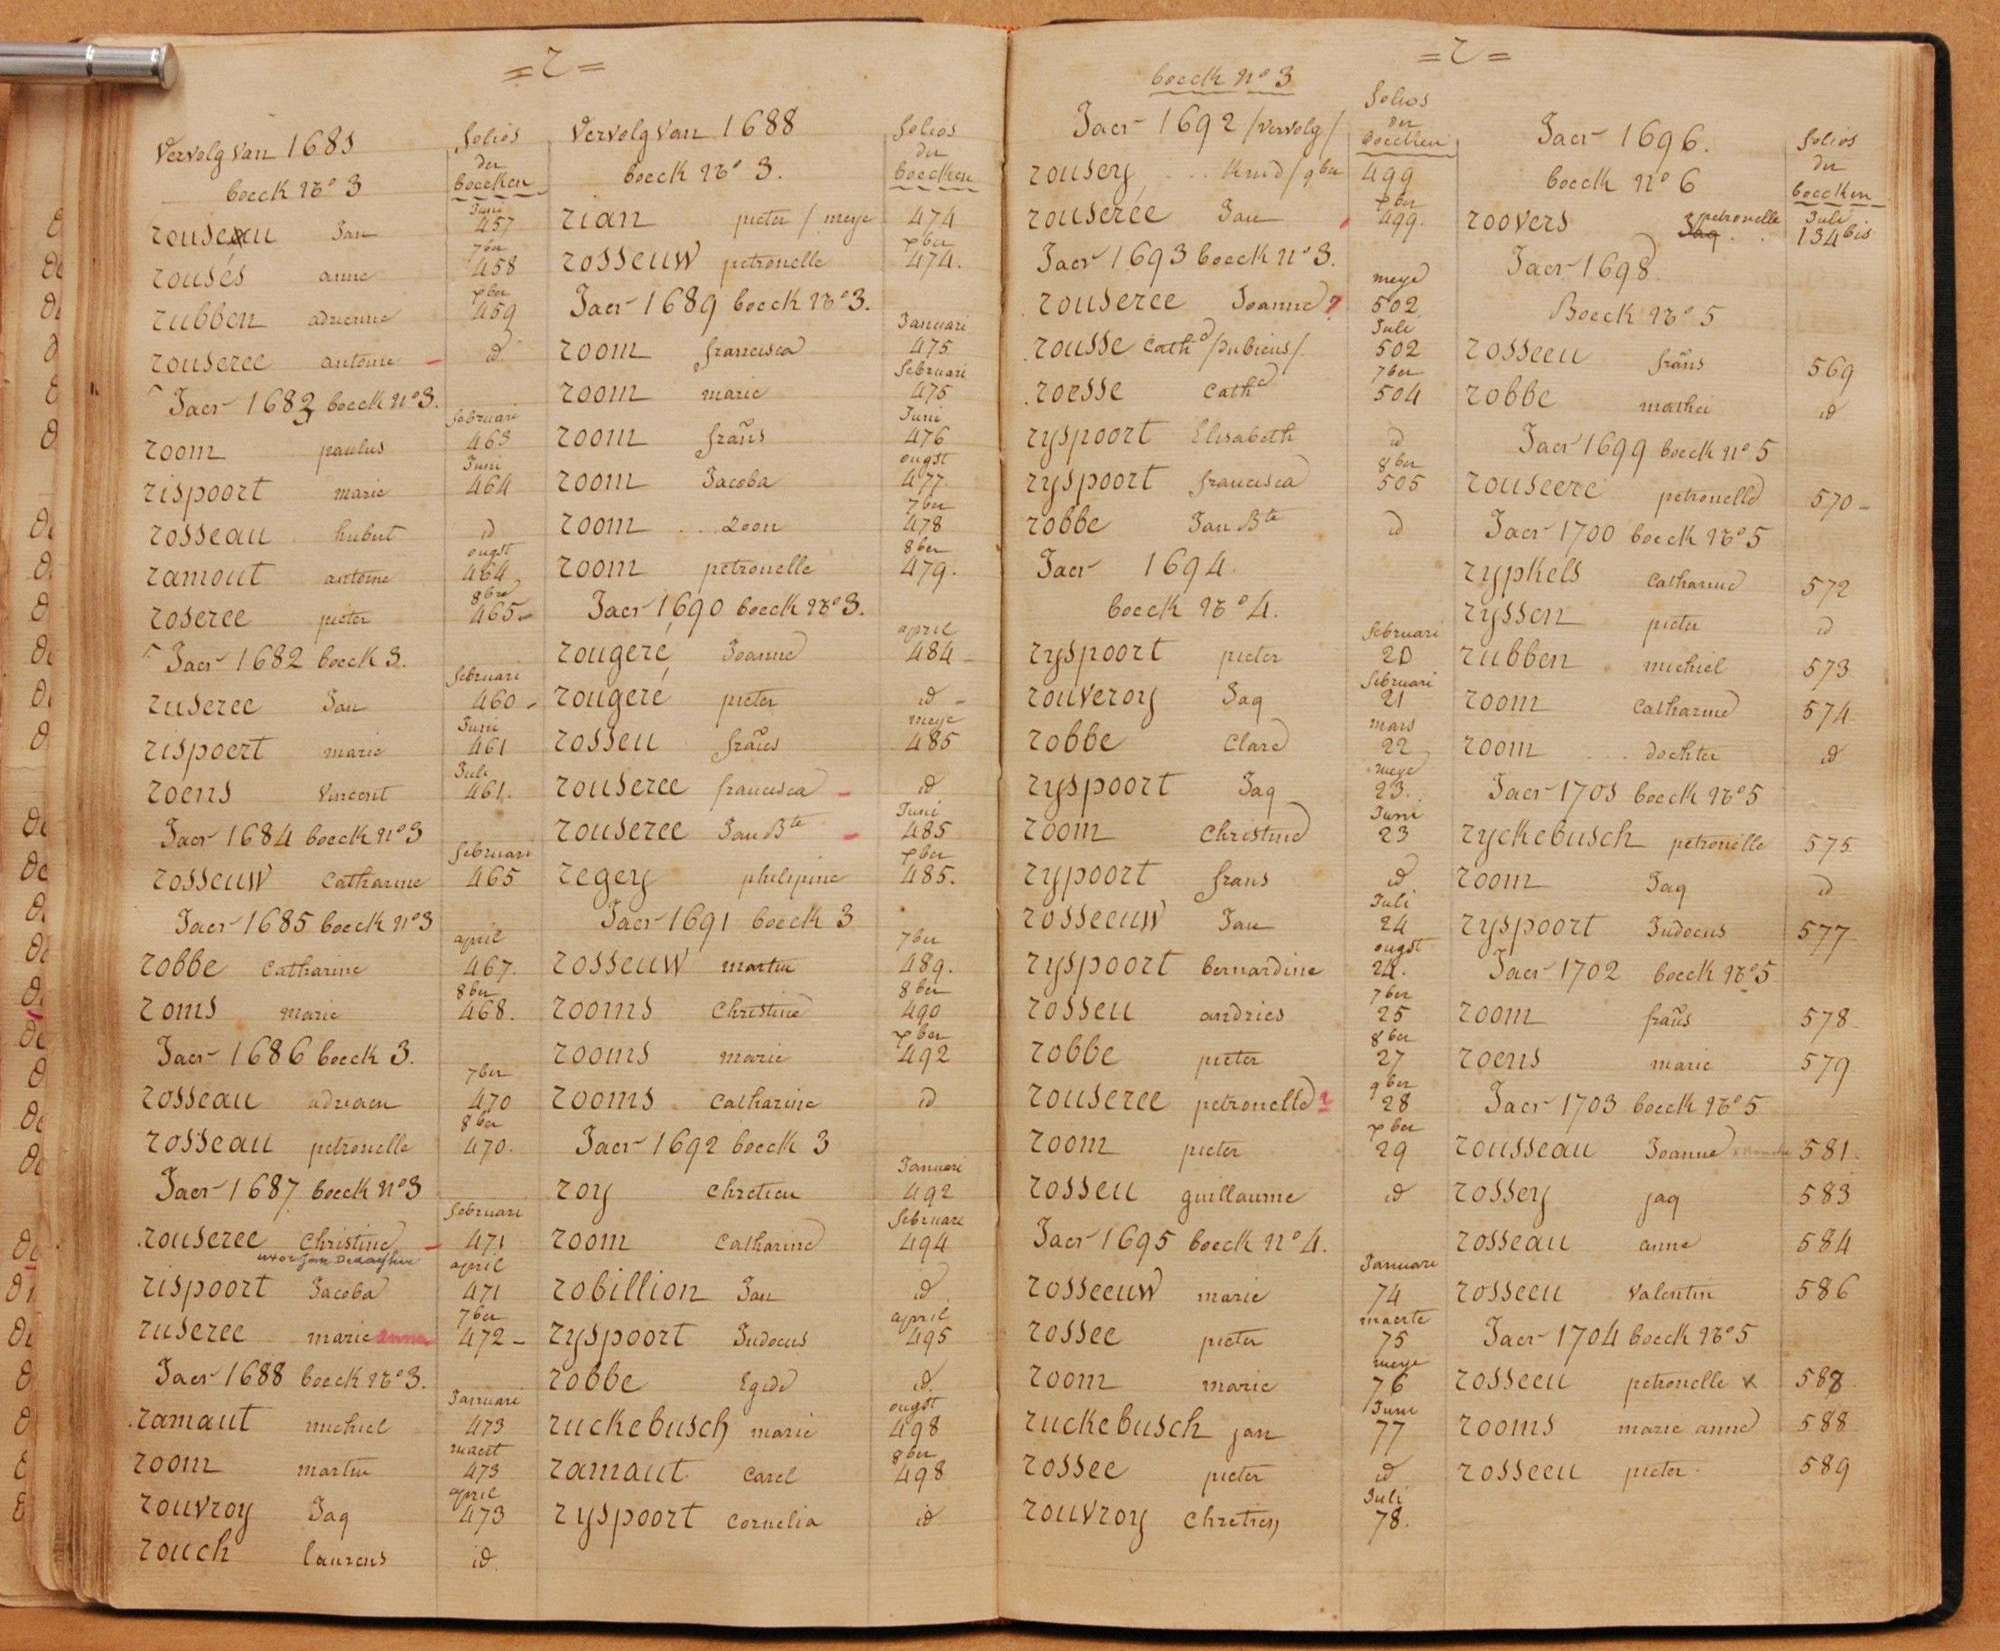 = r =
Vervolg van 1681
boeck No 3
folios
der
boecken
Juni
rouseau Jan 457
7ber
rousés anne 458
xber
rubben adrienne 459
rouseree antoine - id
Jaer 1683 boeck No 3.
februari
room paulus 463
Juni
rispoort marie 464
rosseau hubert id
ougst
ramout antoine 464
8bre
roseree pieter 465-
Jaer 1682 boeck 3.
februari
ruseree Jan 460-
Juni
rispoert marie 461
Juli
roens Vincent 461.
Jaer 1684 boeck No 3
februari
rosseuw Catharine 465
Jaer 1685 boeck No 3
april
robbe Catharine 467.
8ber
roms marie 468.
Jaer 1686 boeck 3.
7ber
rosseau adriaen 470
8ber
rosseau petronelle 470.
Jaer 1687 boeck No 3
februari
rouseree Christine - 471
uxor Jan
april
rispoort Jacoba 471
7ber
ruseree marie anna 472-
Jaer 1688 boeck No 3.
Januari
ramaut michiel 473
maert
room martin 473
april
rouvroy Jaq 473
rouch laurens id.
Vervolg van 1688
boeck No 3.
folios
der
boecken
rian pieter / meye 474
xber
rosseuw petronelle 474.
Jaer 1689 boeck No 3.
Januari
room francisca 475
februari
room marie 475
Juni
room frans 476
ougst
room Jacoba 477
7ber
room .. Zoon 478
8ber
room petronelle 479.
Jaer 1690 boeck No 3.
april
rougeré Joanne 484-
rougeré pieter id-
meye
rosseu frans 485
rouseree francisca - id
Juni
rouseree Jan Bte - 485
xber
regey philipine 485.
Jaer 1691 boeck 3
7ber
rosseuw martin 489.
8ber
rooms Christine 490
xber
rooms marie 492
rooms Catharine id
Jaer 1692 boeck 3
Januari
roy Chretien 492
februari
room Catharine 494
robillion Jan id.
april
ryspoort Judocus 495
robbe Egide id.
ougst
ruckebusch marie 498
8ber
ramaut Carel 498
ryspoort Cornelia id
= r =
boeck No 3
Jaer 1692 /vervolg/
folios
der
boecken
rousery ... kind / 9ber 499
xber
rouserée Jan 499.
Jaer 1693 boeck No 3.
meye
rouseree Joanne ? 502
Juli
rousse Cathe /pubicus/ 502
7ber
roesse Cathe 504
ryspoort Elisabeth id
8ber
ryspoort francisca 505
robbe Jan Bte id
Jaer 1694.
boeck No 4.
februari
ryspoort pieter 20
februari
rouveroy Jaq 21
mars
robbe Clare 22
meye
ryspoort Jaq 23.
Juni
room Christine 23
rypoort frans id
Juli
rosseeuw Jan 24
ougst
ryspoort bernardine 24.
7ber
rosseu andries 25
8ber
robbe pieter 27
9ber
rouseree petronelle ? 28
xber
room pieter 29
rosseu guillaume id
Jaer 1695 boeck No 4.
Januari
rosseeuw marie 74
maerte
rossee pieter 75
meye
room marie 76
Juni
ruckebusch jan 77
rossee pieter id
Juli
rouvroy Chretien 78.
Jaer 1696.
boeck No 6
folios
der
boecken
petronelle Juli
roovers Jaq .. 134 bis
Jaer 1698
Boeck No 5
rosseeu frans 569
robbe mathei id
Jaer 1699 boeck No 5
rouseere petronelle 570-
Jaer 1700 boeck No 5
rypkels Catharine 572
ryssen pieter id
rubben michiel 573
room Catharine 574
room ... dochter id
Jaer 1701 boeck No 5
ryckebusch petronille 575
room Jaq id
ryspoort Judocus 577
Jaer 1702 boeck No 5
room frans 578
roens marie 579
Jaer 1703 boeck No 5
rousseau Joanne 581.
rossey jaq 583
rosseau anne 584
rosseeu Valentin 586
Jaer 1704 boeck No 5
rosseeu petronelle x 588
rooms marie anne 588
rosseeu pieter 589